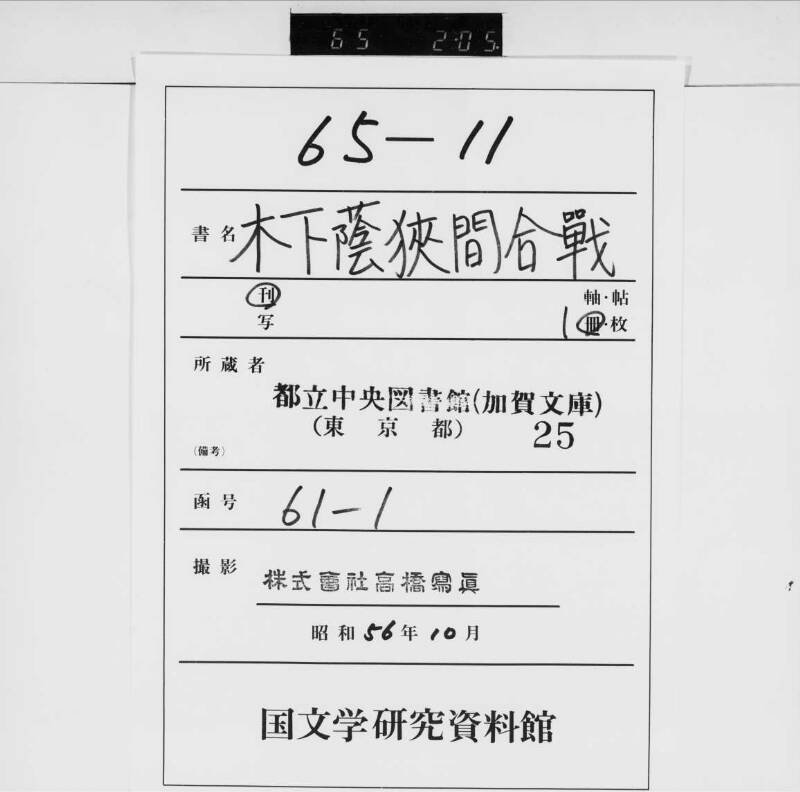 65 2:05.
65-11
書名 木下蔭狹間合戰
刊 軸・帖
写 1冊・枚
所蔵者
都立中央図書館(加賀文庫)
(東京都) 25
(備考)
函号 61-1
撮影 株式會社高橋寫眞
昭和56年10月
国文学研究資料館